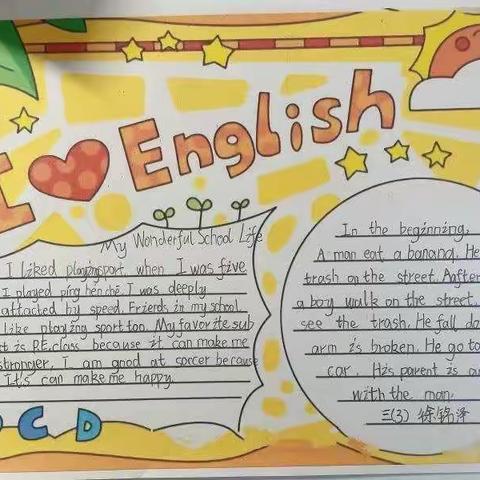 I ❤ English
My Wonderful School Life
I liked playing sport. when I was five
I played ping
I was deeply
attacted by speed. Friends in my school
like playing sport too. My favorite sub
is P.E. class because it can make me
stronger. I am good at soccer because
It's can make me happy.
In the beginning,
A man eat a banana. He
trash on the street. After
a boy walk on the street.
see the trash. He fall do
arm is broken. He go to
car. His parent is a
with the man.
三(3) 徐锦泽
C D